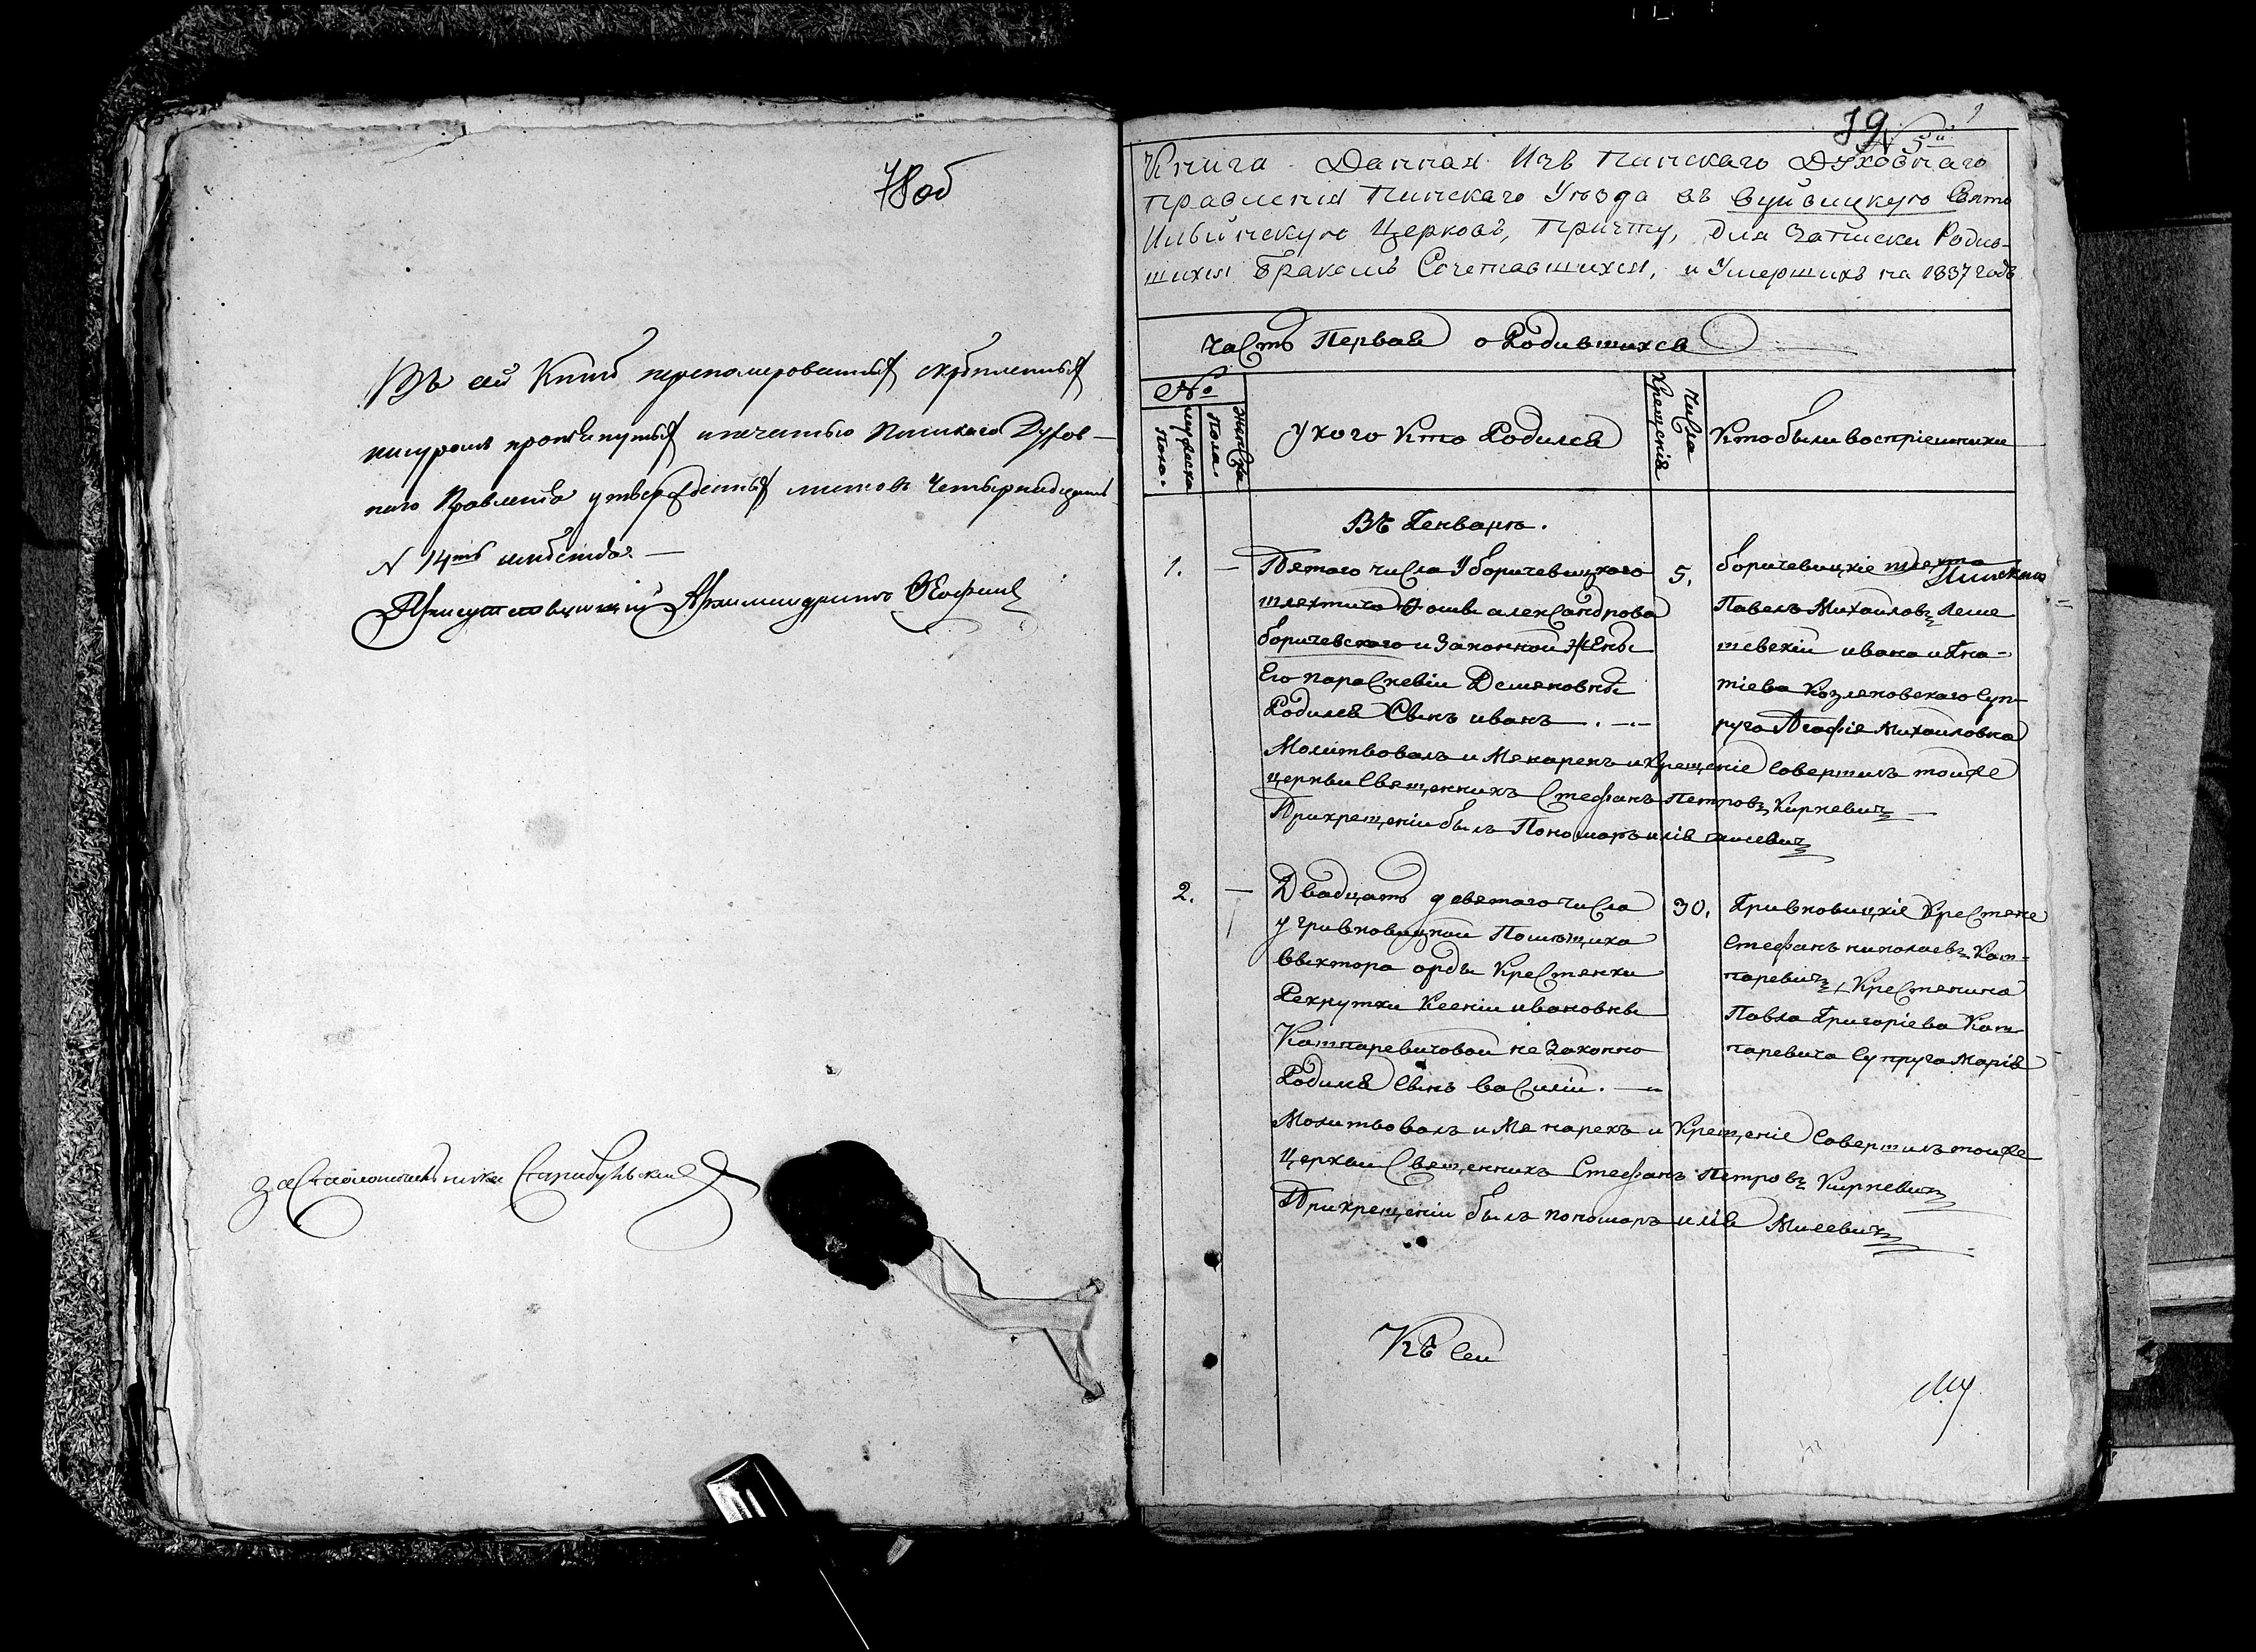 78об
Въ сей Книгѣ переномерованныхъ скрѣпленныхъ
шнуромъ протянутыхъ и печатью Пинскаго Духов-
наго Правленія утвержденныхъ листовъ Четырнадцать
N 14ть листовъ. —
Присутствующій Архимандритъ
за Столоначальника
79
N 5й
1
Книга Данная Изъ Пинскаго Духовнаго
правленія Пинскаго Уѣзда въ Вуйвицкую Свято
Ильинскую Церковь, Причту, для Записки Родив-
шихся Бракомъ Сочетавшихся, и Умершихъ на 1837 годъ
Часть Первая о Родившихся
№
мужеска Пола.
Женска Пола.
У кого Кто Родился
Числа Крещенія
Кто были воспріемники
Въ Генварѣ.
1. — Пятого числа У боричевицкого
шляхтича Фомы александрова
боричевского и Законной Жены
Его параскевіи Демяновны
Родился Сынъ иванъ. —
5.
боричевицкіе
Павелъ Михаиловъ Леше
шевскій ивана игна-
тіева Козляковскаго Суп-
руга Агафія Михаиловна
Молитвовалъ и Мя нарекъ и Крещеніе Совершилъ тойже
церкви Священникъ Стефанъ Петровъ Киркевичъ —
При крещеніи былъ Пономаръ илія
2. — Двадцать девятого числа
у гривковицкой Помѣщика
выктора орды Крестянки
Рекрутки Ксеніи ивановны
Катпаревичовой не Законно
Родился Сынъ василій. —
30.
Гривковицкіе Крестяне
Стефанъ николаевъ Кат-
паревичъ, Крестянина
Павла Григоріева Кат
паревича Супруга Марія
Молитвовалъ и Мя нарекъ и Крещеніе Совершилъ тойже
Церкви Священникъ Стефанъ Петровъ Киркевичъ
При крещеніи былъ пономаръ илія Мисевичъ
Къ Сей